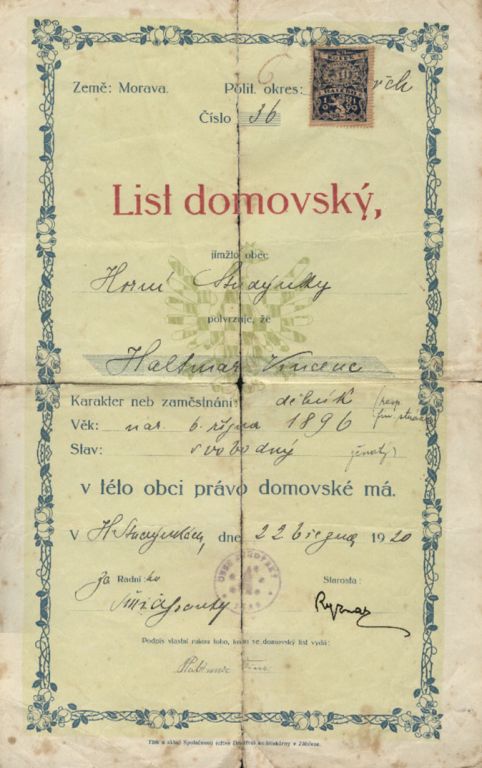 Země: Morava. Polit. okres:
Číslo 36
List domovský,
jímžto obec
Horní Studýnky
potvrzuje, že
Haltmar Vincenc
Karakter neb zaměstnání: dělník
Věk: nar. 6. října 1896
Stav: svobodný ženatý
v této obci právo domovské má.
V H. Studýnkách, dne 22 března 1920
Za Radního Starosta:
Podpis vlastní rukou toho, komu se domovský list vydá:
Tisk a sklad Společenou ručen Družstva knihtiskárny v Zábřeze.